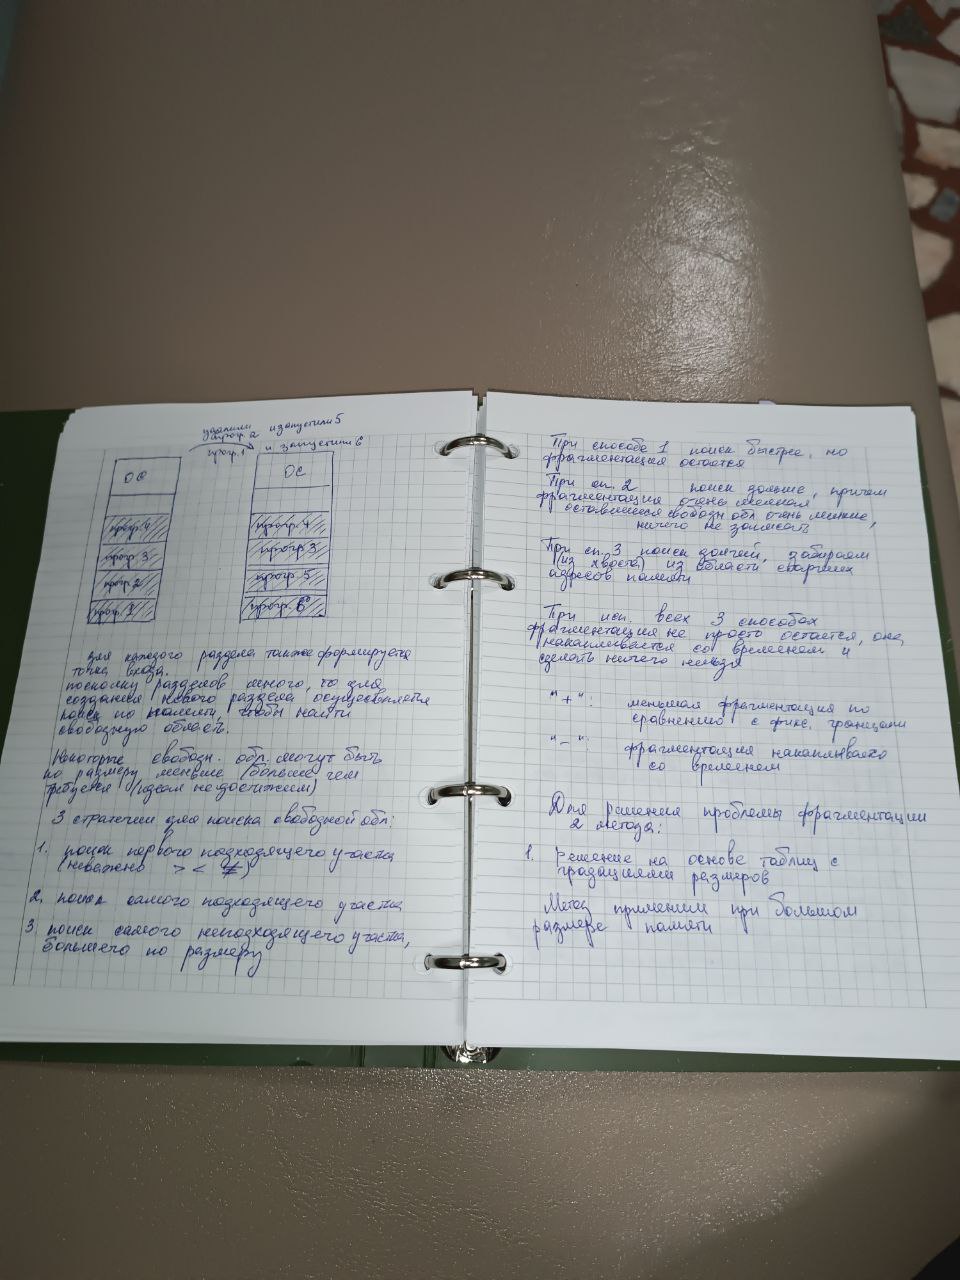 удалили
прогр. 2 и запустили 5
прогр. 1 и запустили 6
ОС
прогр. 4
прогр. 3
прогр. 2
прогр. 1
ОС
прогр. 4
прогр. 3
прогр. 5
прогр. 6
Для каждого раздела также формируется
точка входа.
поскольку разделов много, то для
создания нового раздела осуществляется
поиск по памяти, чтобы найти
свободную область.
Некоторые свободн. обл. могут быть
по размеру меньше / больше чем
требуется (идеал недостижим)
3 стратегии для поиска свободной обл:
1. поиск первого подходящего участка
(неважно > < ≠)
2. поиск самого подходящего участка
3. поиск самого неподходящего участка,
большего по размеру
При способе 1 поиск быстрее, но
фрагментация остается
При сп. 2 поиск дольше, причем
фрагментация очень мелкая
оставшиеся свободн обл очень мелкие,
ничего не записать
При сп. 3 поиск долгий, забираем
(из хвоста) из области старших
адресов памяти
При исп. всех 3 способах
фрагментация не просто остается, она
накапливается со временем и
сделать ничего нельзя
"+": меньшая фрагментация по
сравнению с фикс. границами
"-": фрагментация накапливается
со временем
Для решения проблемы фрагментации
2 метода:
1. Решение на основе таблиц с
градациями размеров
Метод применим при большом
размере памяти